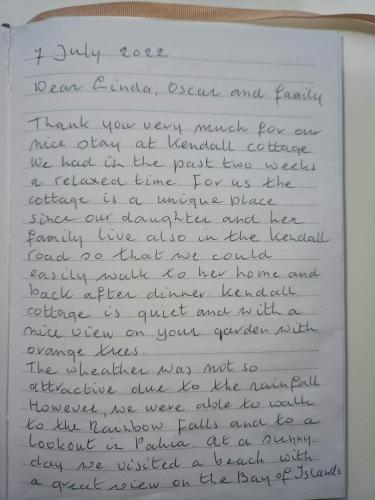 7 July 2022
Dear Linda, Oscar and family
Thank you very much for our
nice stay at Kendall cottage
We had in the past two weeks
a relaxed time. For us the
cottage is a unique place
since our daughter and her
family live also in the Kendall
road so that we could
easily walk to her home and
back after dinner. Kendall
cottage is quiet and with a
nice view on your garden with
orange trees.
The wheather was not so
attractive due to the rainfall.
However, we were able to walk
to the Rainbow Falls and to a
lookout in Pahia. At a sunny
day we visited a beach with
a great view on the Bay of Islands